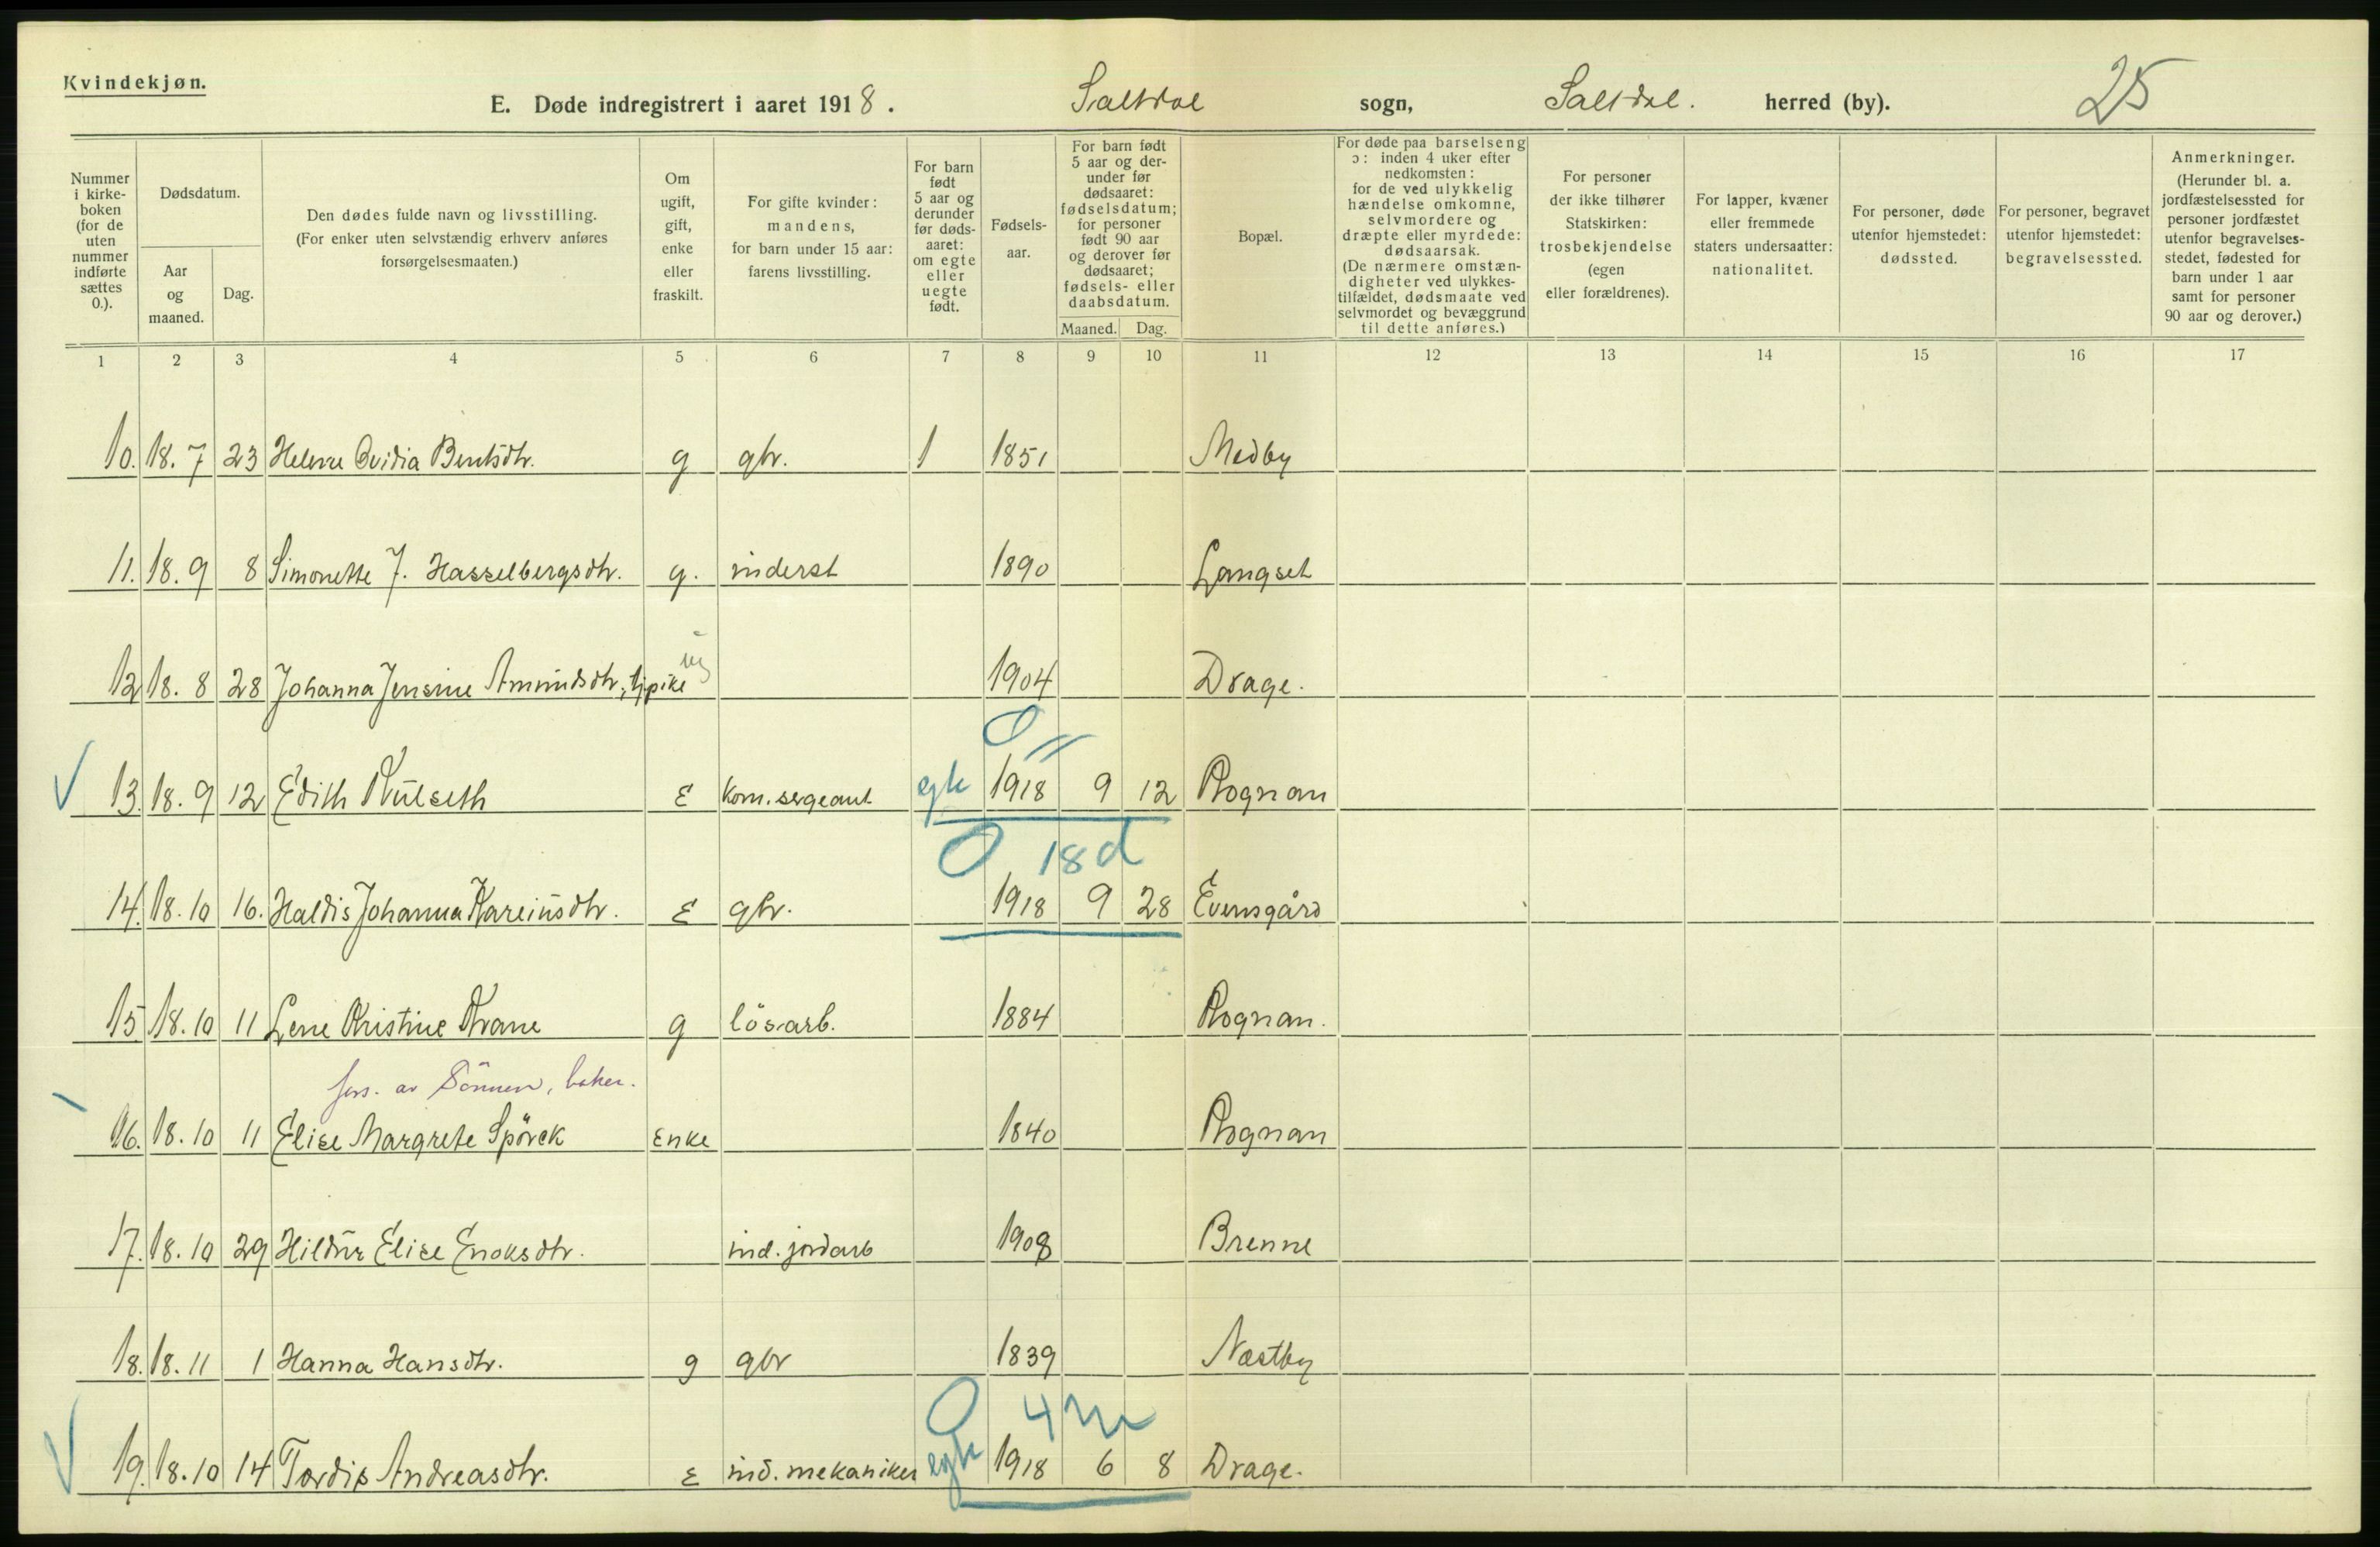 Kvindekjøn.
E. Døde indregistrert i aaret 1918. Saltdal sogn, Saltdal. herred (by). 25
Nummer i kirke-boken (for de uten nummer indførte sættes 0.).
Dødsdatum.
Aar og maaned.
Dag.
Den dødes fulde navn og livsstilling.
(For enker uten selvstændig erhverv anføres
forsørgelsesmaaten.)
Om ugift, gift, enke eller fraskilt.
For gifte kvinder: mandens, for barn under 15 aar: farens livsstilling.
For barn født 5 aar og derunder før døds-aaret: om egte eller uegte født.
Fødsels-aar.
For barn født 5 aar og der-under før dødsaaret: fødselsdatum; for personer født 90 aar og derover før dødsaaret; fødsels- eller daabsdatum.
Maaned. Dag.
Bopæl.
For døde paa barselseng ɔ: inden 4 uker efter nedkomsten: for de ved ulykkelig hændelse omkomne, selvmordere og dræpte eller myrdede: dødsaarsak. (De nærmere omstæn-digheter ved ulykkes-tilfældet, dødsmaate ved selvmordet og bevæggrund til dette anføres.)
For personer der ikke tilhører Statskirken: trosbekjendelse (egen eller forældrenes).
For lapper, kvæner eller fremmede staters undersaatter: nationalitet.
For personer, døde utenfor hjemstedet: dødssted.
For personer, begravet utenfor hjemstedet: begravelsessted.
Anmerkninger. (Herunder bl. a. jordfæstelsessted for personer jordfæstet utenfor begravelses-stedet, fødested for barn under 1 aar samt for personer 90 aar og derover.)
1 2 3 4 5 6 7 8 9 10 11 12 13 14 15 16 17
10. 18. 7 23 Helene Ovidia Bentsdtr. g gbr. 1 1851 Medby
11. 18. 9 8 Simonette J. Hasselbergsdtr. g. inderst 1890 Langset
ug
12 18. 8 28 Johanna Jensine Amundsdtr., tj.pike 1904 Drage.
0 "
13. 18. 9 12 Edith Hülseth E kom. sergeant egte 1918 9 12 Rognan
0 18 d
14. 18. 10 16. Haldis Johanna Kareinsdtr. E gbr. 1918 9 28 Evensgård
15 18. 10 11 Lene Kristine Krane g lösarb. 1884 Rognan.
fors. av Sönnen, baker.
16. 18. 10 11 Elise Margrete Spörck Enke 1840 Rognan
17. 18. 10 29 Hildur Elise Enoksdtr. ind. jordarb 1908 Brenne
18. 18. 11 1 Hanna Hansdtr. g gbr 1839 Nestby
0 4 m
19. 18. 10 14 Tordis Andreasdtr. E ind. mekaniker egte 1918 6 8 Drage.